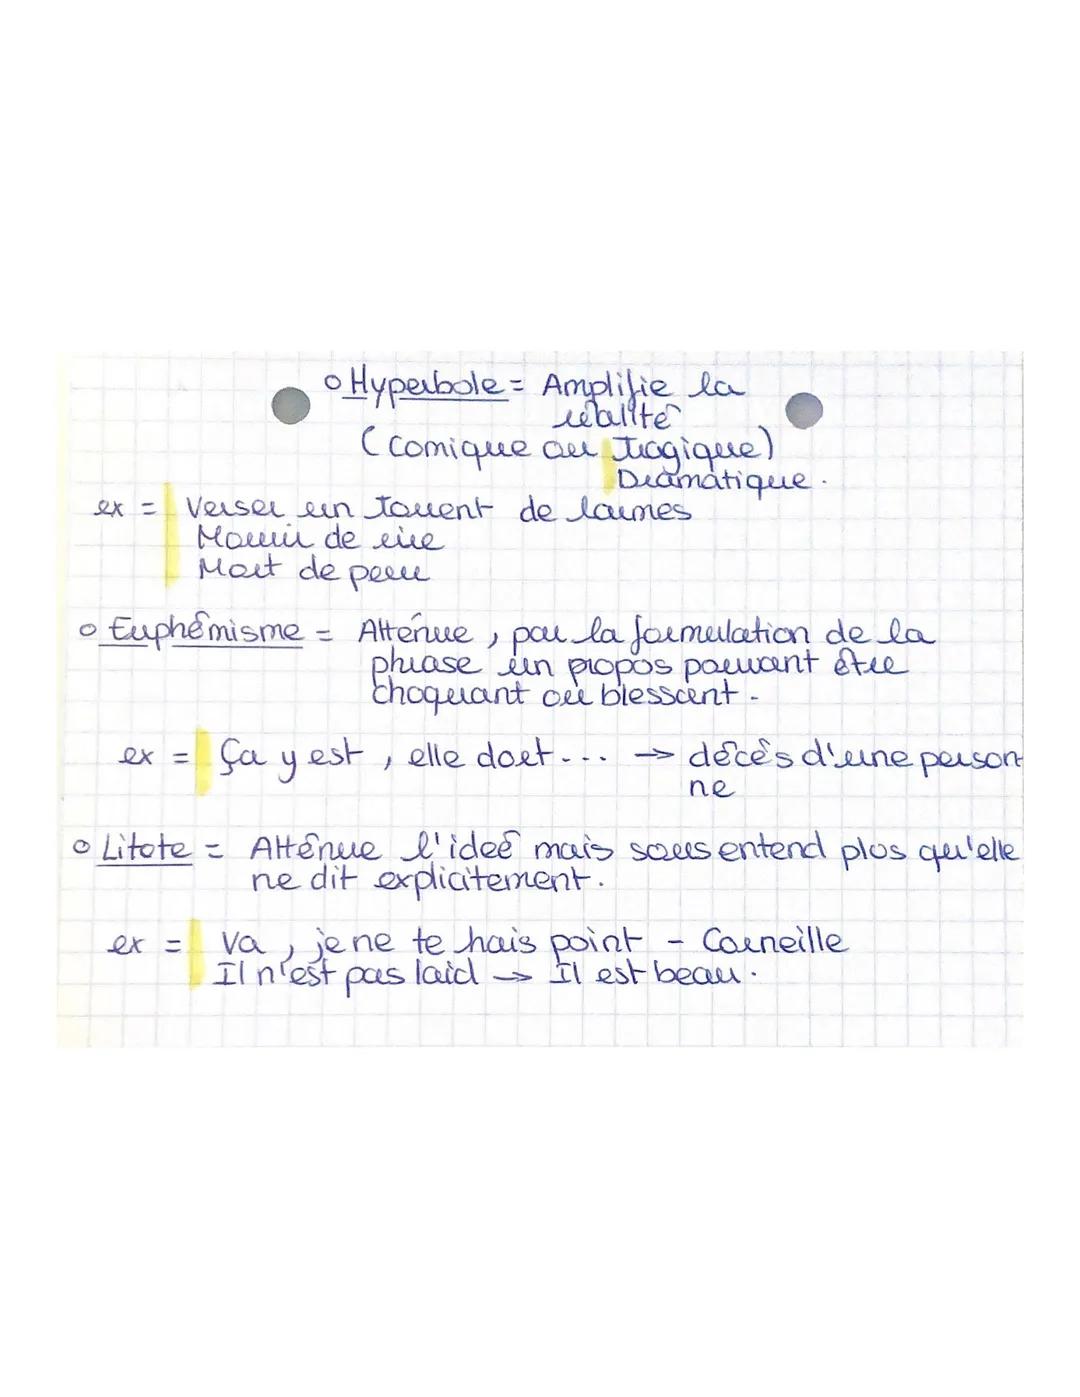 o Hyperbole = Amplifie la
réalité
(comique ou Tragique)
Dramatique.
ex = Verser un torrent de larmes
Mourir de rire
Mort de peur
o Euphémisme = Atténue, par la formulation de la
phrase un propos pouvant être
choquant ou blessant.
ex = Ça y est, elle dort... → décès d'une person
ne
o Litote = Atténue l'ideé mais sous entend plus qu'elle
ne dit explicitement.
ex = Va, je ne te hais point - Corneille
Il n'est pas laid → Il est beau.